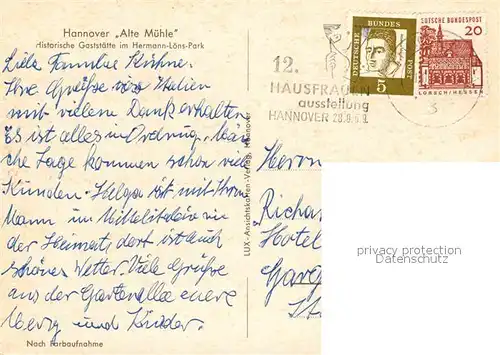 Hannover „Alte Mühle"
Historische Gaststätte im Hermann-Löns-Park
Liebe Familie Kirchner.
Ihre Grüße aus Italien
mit vielem Dank erhalten
Es ist alles in Ordnung. Man-
che Tage kommen schon viel
Kunden. Helga ist mit Ihrem
Mann im
der Heimat, dort ist auch
schönes Wetter. Viele Grüße
aus der Gartenallee euere
und Kinder.
Nach Farbaufnahme
LUX-Ansichtskarten-Verlag, Hannover
12.
HAUSFRAUEN
ausstellung
HANNOVER 28.8.
DEUTSCHE BUNDES POST
5
DEUTSCHE BUNDESPOST
20
LORSCH/HESSEN
3
Herrn
Richar
Hotel
Garg
privacy protection
Datenschutz